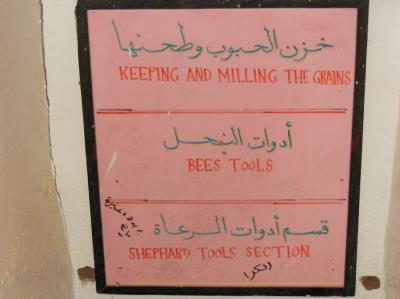 خزن الحبوب وطحنها
KEEPING AND MILLING THE GRAINS
أدوات النحل
BEES TOOLS
قسم أدوات الرعاة
SHEPHARD TOOLS SECTION